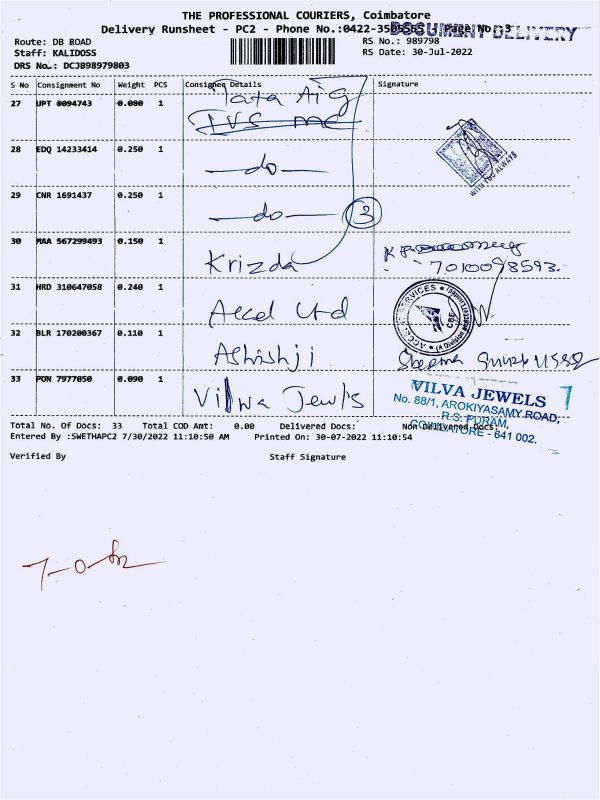 THE PROFESSIONAL COURIERS, Coimbatore
Delivery Runsheet - PC2 - Phone No.:0422-3505555 Page No. 3
DOCUMENT DELIVERY
Route: DB ROAD
RS No.: 989798
Staff: KALIDOSS
RS Date: 30-Jul-2022
DRS No.: DCJB98979803
S No Consignment No Weight PCS Consignee Details Signature
27 UPT 0094743 0.080 1 Tata Aig
TVS
28 EDQ 14233414 0.250 1 —do—
WITH YOU ALWAYS
29 CNR 1691437 0.250 1 —do— 3
30 MAA 567299493 0.150 1 Krizda
7010098593
31 HRD 310647058 0.240 1 Accel Ltd
SERVICES
CBE
32 BLR 170200367 0.110 1 Ashishji
33 PON 7977050 0.090 1 Vilwa Jewls
VILVA JEWELS
No. 88/1, AROKIYASAMY ROAD,
R.S. PURAM,
COIMBATORE - 641 002.
Total No. Of Docs: 33 Total COD Amt: 0.00 Delivered Docs: Non Delivered Docs:
Entered By :SWETHAPC2 7/30/2022 11:10:50 AM Printed On: 30-07-2022 11:10:54
Verified By Staff Signature